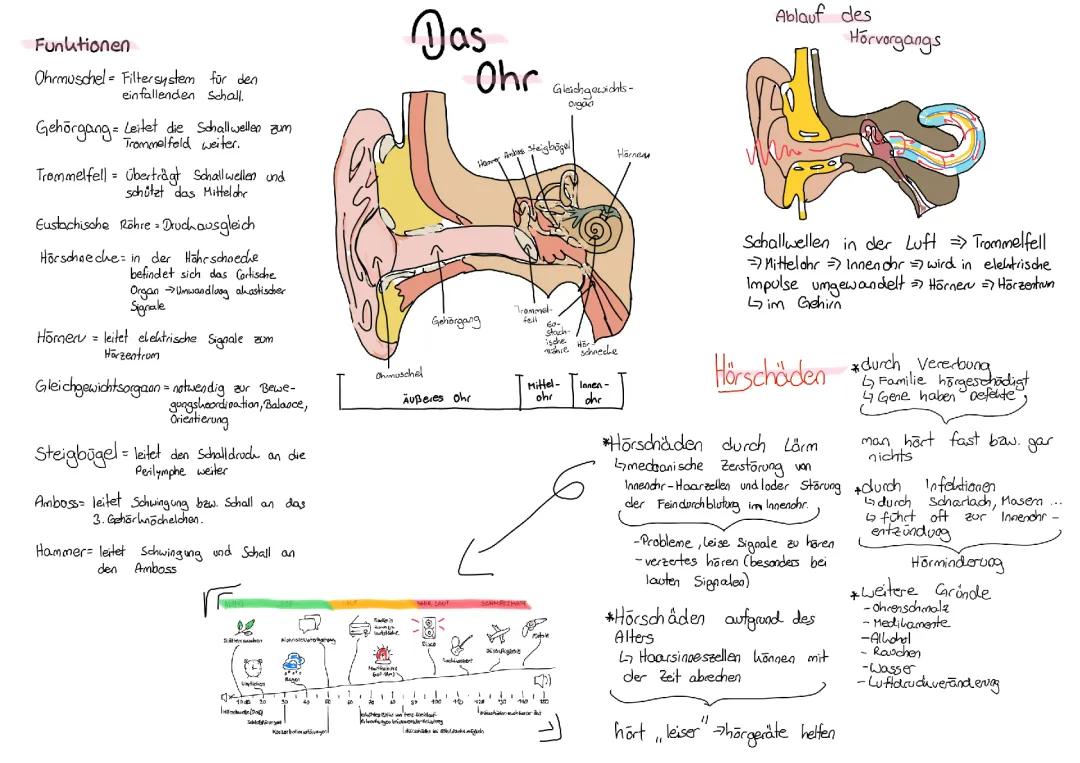 Das
Ohr
Funktionen
Ohrmuschel = Filtersystem für den
einfallenden Schall.
Gehörgang = Leitet die Schallwellen zum
Trommelfeld weiter.
Trommelfell = überträgt Schallwellen und
schützt das Mittelohr
Eustachische Röhre = Druckausgleich
Hörschnecke = in der Höhrschnecke
befindet sich das Cortische
Organ → Umwandlung akustischer
Signale
Hörnerv = leitet elektrische Signale zum
Hörzentrum
Gleichgewichtsorgaan = notwendig zur Bewe-
gungskoordination, Balance,
Orientierung
Steigbügel = leitet den Schalldruck an die
Perilymphe weiter
Amboss = leitet Schwingung bzw. Schall an das
3. Gehörknöchelchen.
Hammer = leitet Schwingung und Schall an
den Amboss
Gleichgewichts-
organ
Hammer Amboss Steigbügel
Hörnerv
Gehörgang
Trommel-
fell
Eu-
stach-
ische
Röhre
Hör-
schnecke
Ohrmuschel
äußeres Ohr
Mittel-
ohr
Innen-
ohr
Ablauf des
Hörvorgangs
Schallwellen in der Luft ⇒ Trommelfell
⇒ Mittelohr ⇒ Innenohr ⇒ wird in elektrische
Impulse umgewandelt ⇒ Hörnerv ⇒ Hörzentrum
↳ im Gehirn
Hörschäden
*Hörschäden durch Lärm
↳ mechanische Zerstörung von
Innenohr-Haarzellen und/oder Störung
der Feindurchblutung im Innenohr.
- Probleme, leise Signale zu hören
- verzertes hören (besonders bei
lauten Signalen)
*Hörschäden aufgrund des
Alters
↳ Haarsinneszellen können mit
der Zeit abrechen
hört „leiser" → hörgeräte helfen
*durch Vererbung
↳ Familie hörgeschädigt
↳ Gene haben Defekte
man hört fast bzw. gar
nichts
*durch Infektionen
↳ durch Scharlach, Masern ...
↳ führt oft zur Innenohr-
entzündung
Hörminderung
*weitere Gründe
- Ohrenschmalz
- Medikamente
- Alkohol
- Rauchen
- Wasser
- Luftdruckveränderung
SEHR LAUT
SCHMERZHAFT
Disco
Pistole
Regen